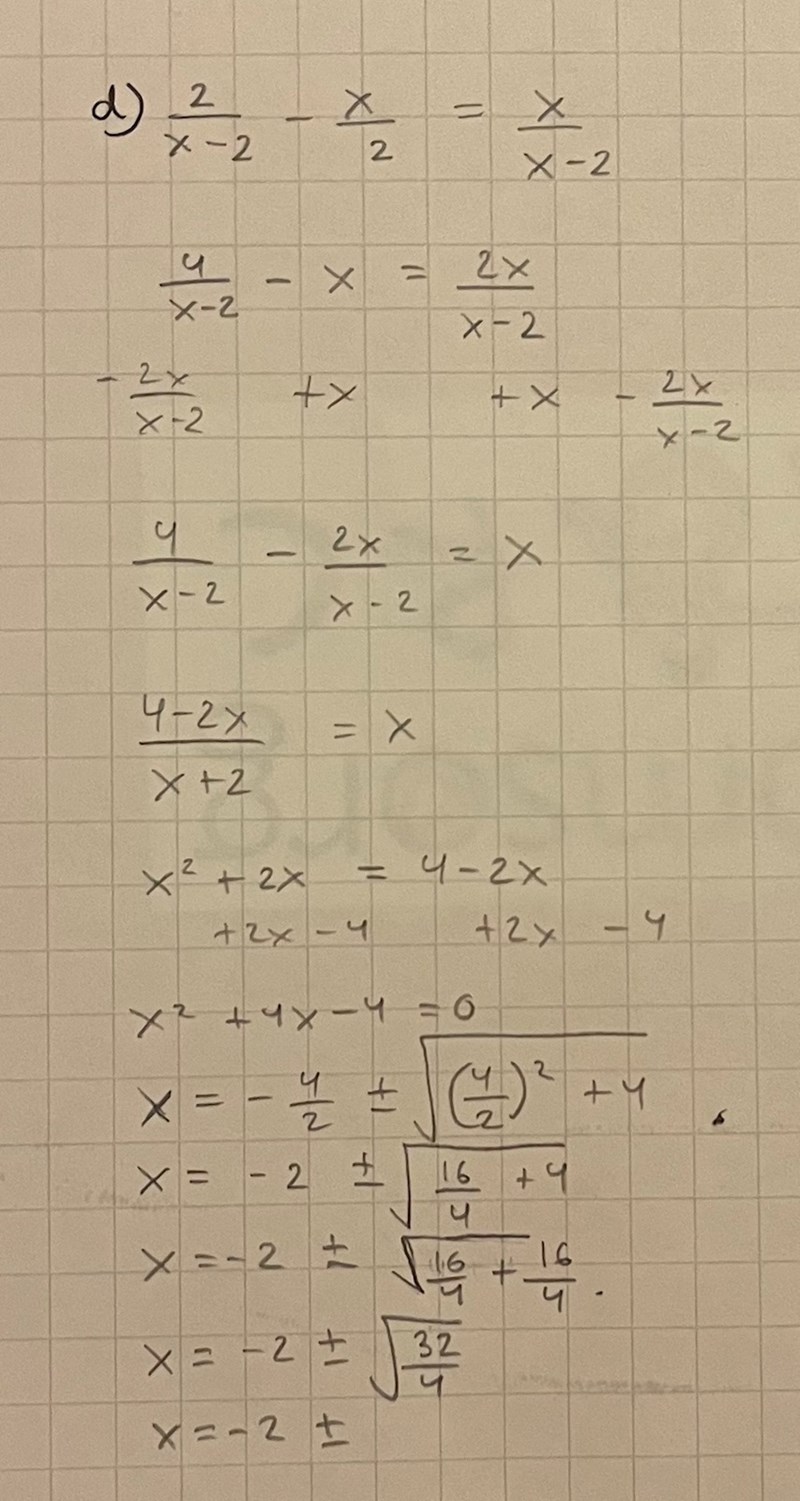 d) 2/(x-2) - x/2 = x/(x-2)
4/(x-2) - x = 2x/(x-2)
- 2x/(x-2) +x +x - 2x/(x-2)
4/(x-2) - 2x/(x-2) = x
(4-2x)/(x+2) = x
x² + 2x = 4-2x
+2x -4 +2x -4
x² +4x-4 =0
x = - 4/2 ± √((4/2)² +4)
x = -2 ± √(16/4 +4)
x = -2 ± √(16/4 + 16/4) .
x = -2 ± √(32/4)
x = -2 ±